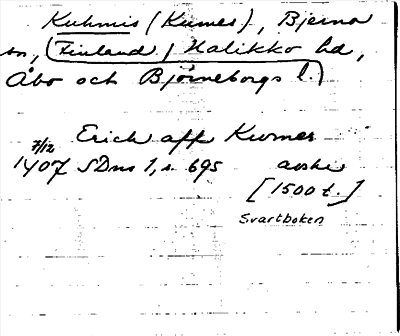 Kuhmis (Kumes), Bjerno
sn, (Finland, Halikko hd,
Åbo och Björneborgs l.)
Erich aff Kumes
7/12
1407 SDns 1, s. 695 avskr
[1500 t.]
Svartboken